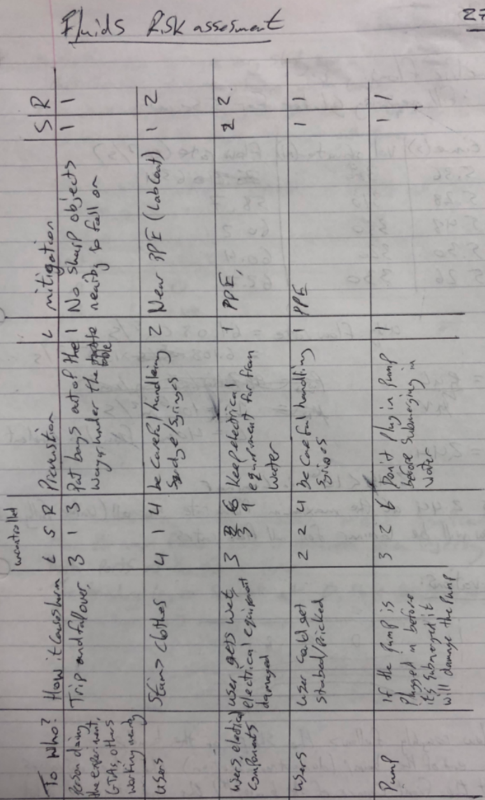 Fluids Risk assesment
27
uncontrolled
To Who? How it causes harm L S R Prevention L mitigation S R
Person doing the experiment, GTAs, others working nearby
Trip and fall over.
3 1 3
Put bags out of the way under the table
1
No sharp objects nearby to fall on
1 1
users
Stains clothes
4 1 4
be careful handling Syringes
2
Wear PPE (Lab Coat)
1 2
users, eletical components
user gets wet, electrical equipment damaged
3 3 9
Keep electrical equipment far from water
1
PPE,
2 2
users
user could get stabed/pricked
2 2 4
be careful handling Syringes
1
PPE
1 1
Pump
if the pump is plugged in before its submerged it will damage the pump
3 2 6
Don't plug in pump before submerging in water
1
1 1